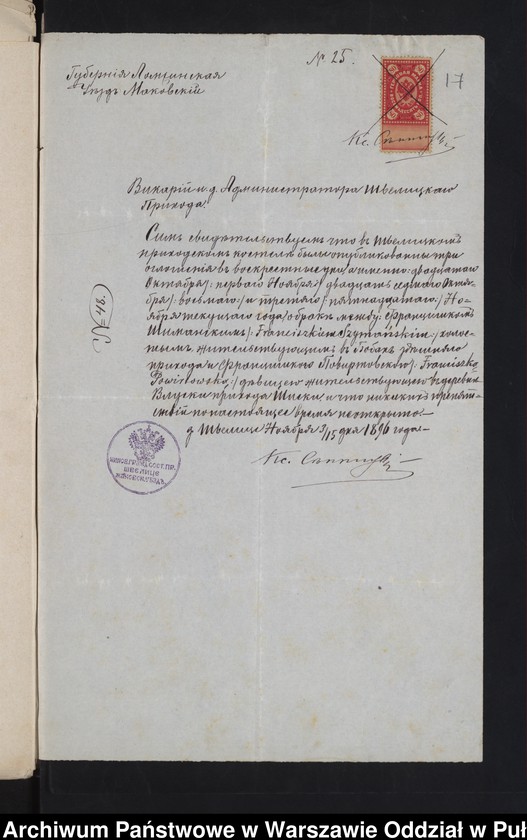 № 25.
17
Губернія Ломжинская
Уѣздъ Маковскій
Кс.
Викарій и. д. Администратора Швелицкаго
Прихода.
Симъ свидѣтельствуемъ что въ Швелицкомъ
приходскомъ костелѣ были опубликованны три
оглашенія въ воскрестные дни, а именно: двадцатаго
Октября /: перваго Ноября :/ двадцать седьмаго Октя-
бря /: восьмаго :/ и третяго /: пятнадцатаго :/ Но-
ября текущаго года, о бракѣ между: Францишкомъ
Шиманскимъ /: Franciszkiem Szymańskim :/ холос-
тымъ, жительствующимъ въ
прихода и Францишкою /: Franciszką
:/ дѣвицею жительствующею въ деревни
прихода и что никакихъ препят-
ствій по настоящее время не открыто
д Швелице Ноября 3/15 дня 1896 года
Кс.
(84) №
ШВЕЛИЦЕ
Archiwum Państwowe w Warszawie Oddział w Puł